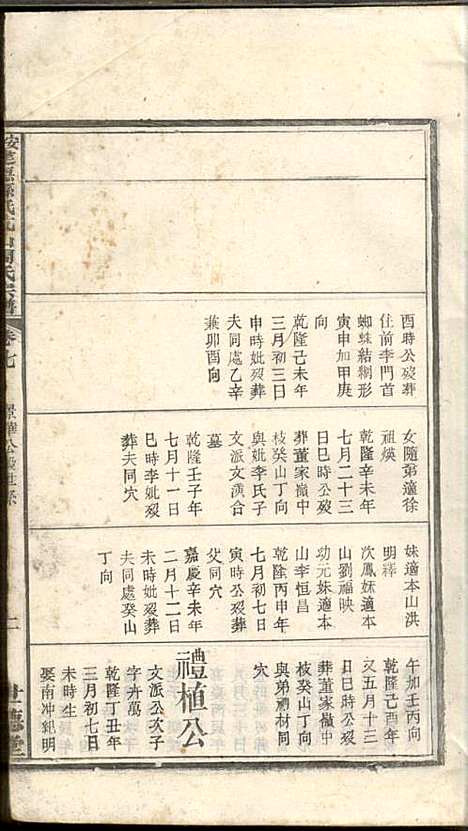 酉時公歿葬
住前李門首
蜘蛛結網形
寅申加甲庚
向
乾隆己未年
三月初三日
申時妣歿葬
夫同處乙辛
兼卯酉向
女隨弟適徐
祖煐
乾隆辛未年
七月二十三
日巳時公歿
葬董家嶺中
枝癸山丁向
與妣李氏子
文派文漢合
墓
乾隆壬子年
七月十一日
巳時李妣歿
葬夫同穴
妹適本山洪
明釋
次鳳妹適本
山劉福映
幼元妹適本
山李恒昌
乾隆丙申年
七月初七日
寅時公歿葬
父同穴
嘉慶辛未年
二月十二日
未時妣歿葬
夫同處癸山
丁向
午加壬丙向
乾隆己酉年
又五月十三
日巳時公歿
葬董家嶺中
枝癸山丁向
與弟禮材同
穴
禮植公
文派公次子
字卉萬
乾隆丁丑年
三月初七日
未時生
娶南冲紀明
氏宗譜
卷七
二
世德堂